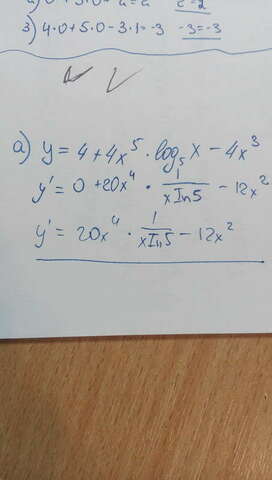 3) 4·0+5·0-3·1=-3 -3=-3
а) y = 4 + 4x⁵ · log₅ x - 4x³
y' = 0 + 20x⁴ · 1/(x ln5) - 12x²
y' = 20x⁴ · 1/(x ln5) - 12x²